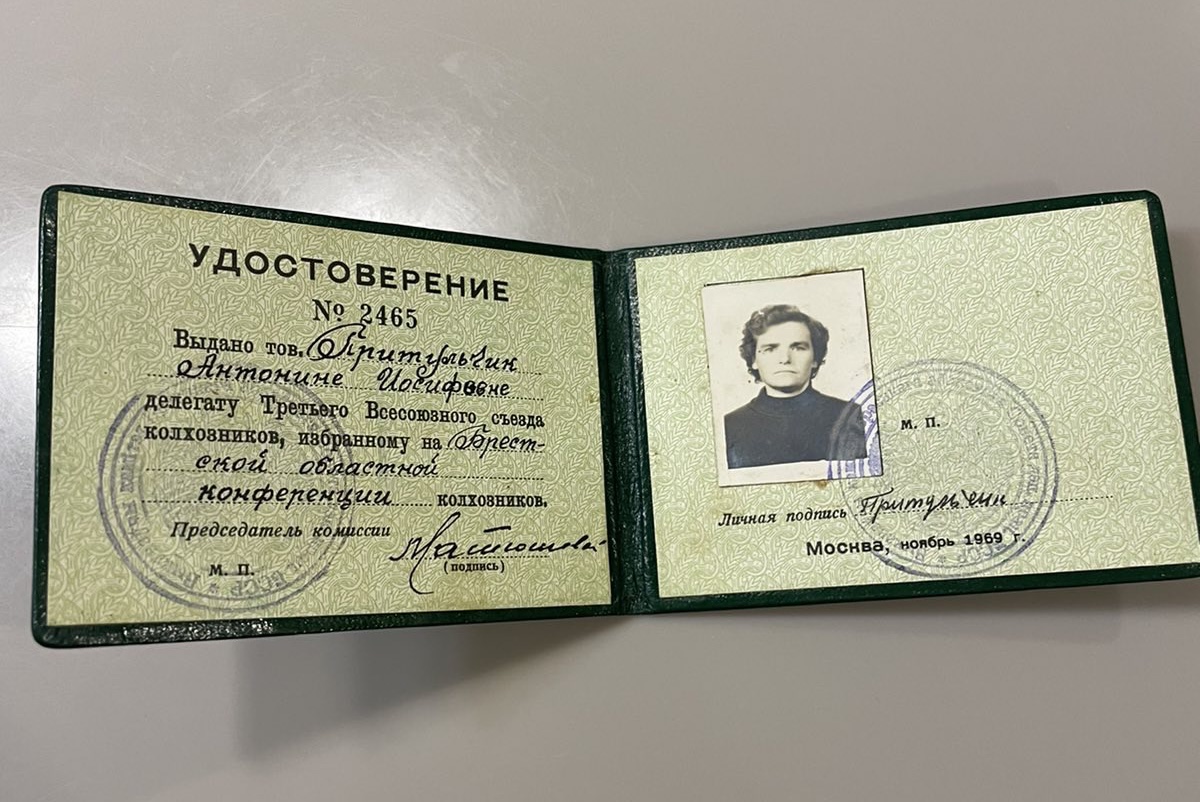 УДОСТОВЕРЕНИЕ
№ 2465
Выдано тов. Притульчик
Антонине Иосифовне
делегату Третьего Всесоюзного съезда
колхозников, избранному на Брест-
ской областной
конференции колхозников.
Председатель комиссии
(подпись)
М. П.
М. П.
Личная подпись Притульчик
Москва, ноябрь 1969 г.